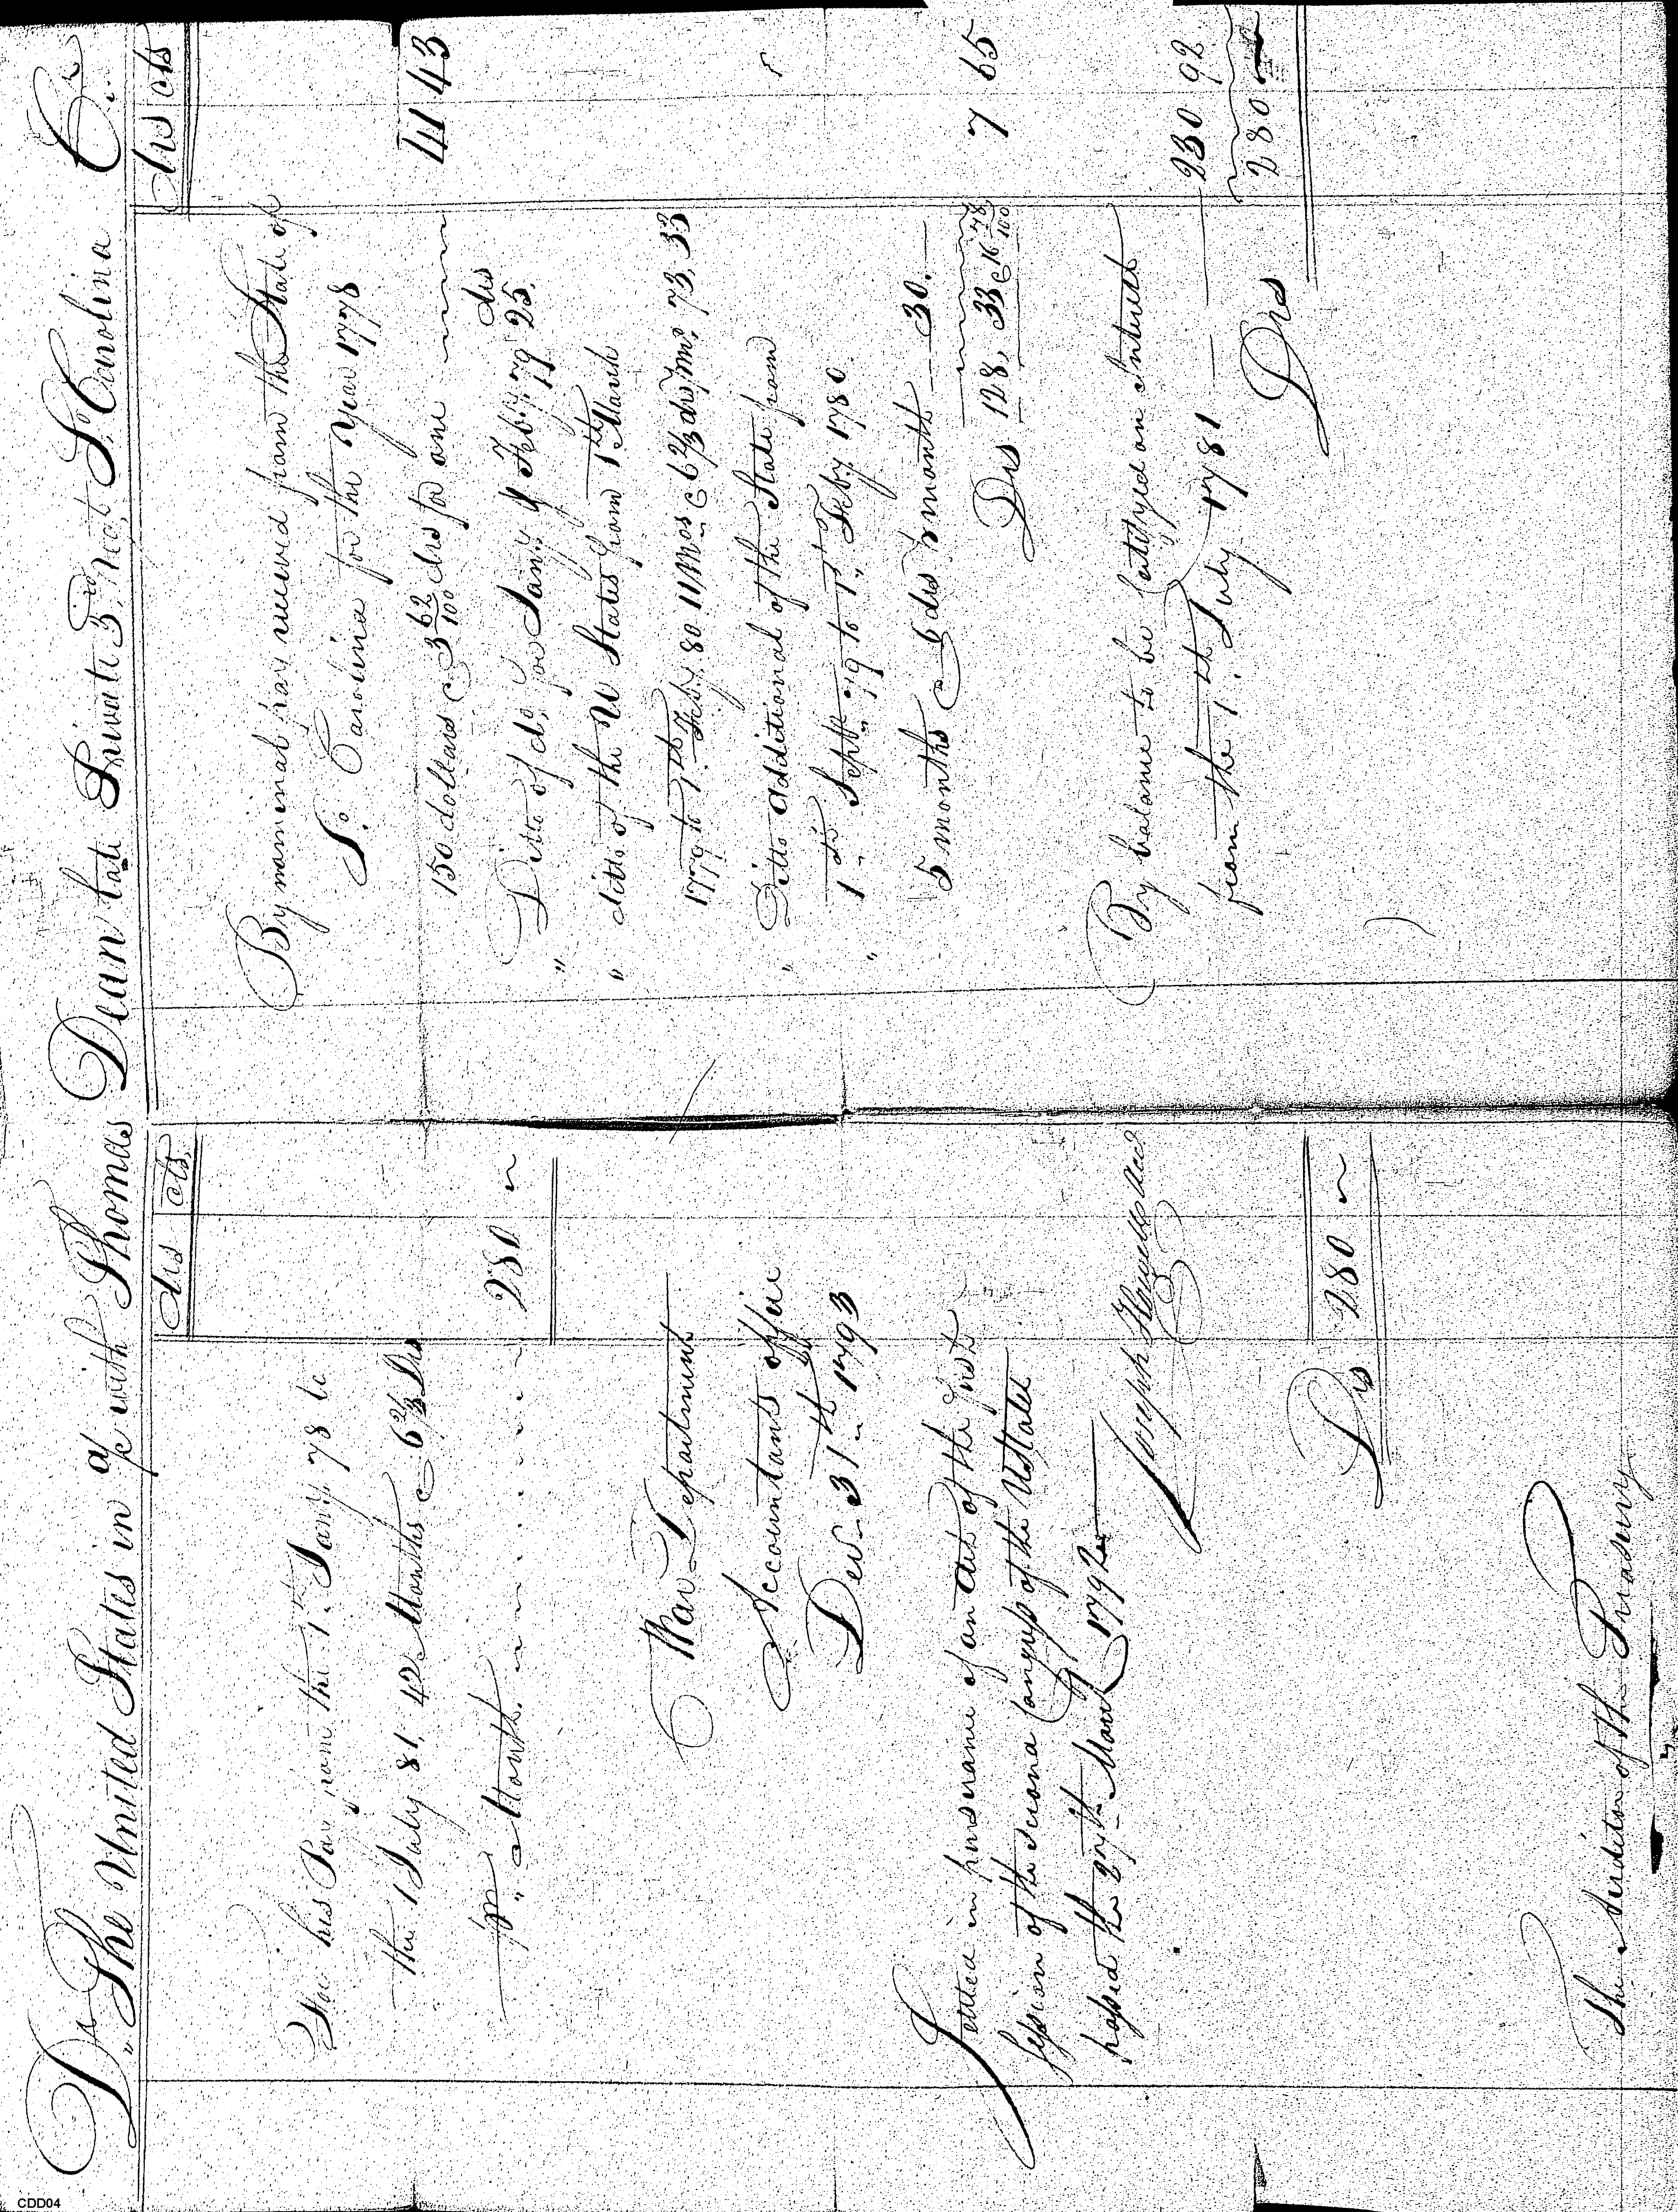 Dr The United States in a/c with Thomas Dean late Private 3rd Regt So Carolina Cr
drs cts
For his Pay from the 1st Jany 78 to
the 1 July 81, 42 Months @ 6 2/3 Drs
pr Month 280 ~
War Department
Accountants office
Decr 31th 1793
Settled in pursuance of an act of the first
session of the second Congress of the UStates
passed the 27th March 1792
Joseph Howell
Drs 280 ~
The Auditor of the Treasury
Drs cts
By nominal pay received from the State of
So Carolina for the Year 1778
150 dollars @ 3 62/100 drs for one 41 43
" Ditto of do, for Jany & Feby 79 drs 25,
" ditto of the U States from 1th March
1779 to 1th Feby 80 11 Mos @ 6 2/3 drs pr mo, 73, 33
" Ditto additional of the State from
" 1st Septr 79 to 1st Feby 1780.
5 months @ 6 drs pr month 30.
Drs 128, 33 @ 16 78/100 7 65
By balance to be Certifyed on Interest
from the 1th July 1781 230 92
Drs 280 ~
CDD04